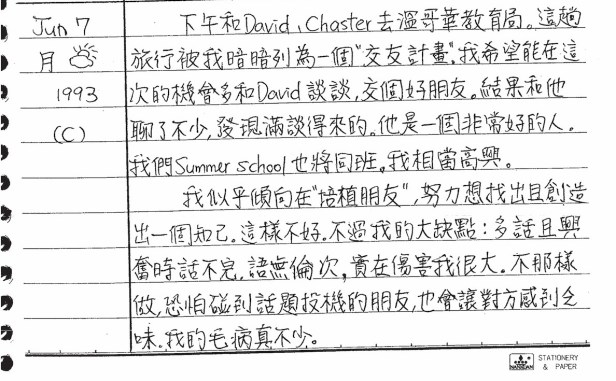 Jun 7
月
1993
(C)
下午和David、Chaster去溫哥華教育局。這趟
旅行被我暗暗列為一個"交友計畫"。我希望能在這
次的機會多和David談談,交個好朋友。結果和他
聊了不少,發現滿談得來的。他是一個非常好的人。
我們Summer school也將同班。我相當高興。
我似乎傾向在"培植朋友",努力想找出且創造
出一個知己。這樣不好。不過我的大缺點:多話且興
奮時話不完,語無倫次,實在傷害我很大。不那樣
做,恐怕碰到話題投機的朋友,也會讓對方感到乏
味。我的毛病真不少。
NANKEAN STATIONERY
& PAPER